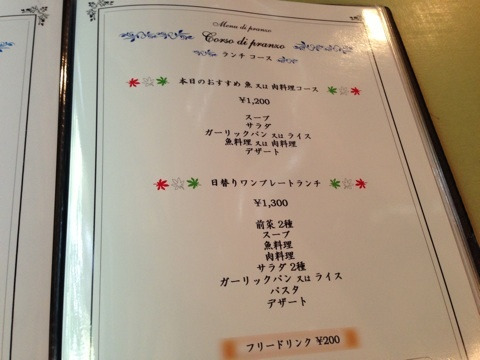 Menu di pranzo
Corso di pranzo
ランチ コース
本日のおすすめ 魚 又は 肉料理コース
¥1,200
スープ
サラダ
ガーリックパン 又は ライス
魚料理 又は 肉料理
デザート
日替りワンプレートランチ
¥1,300
前菜2種
スープ
魚料理
肉料理
サラダ2種
ガーリックパン 又は ライス
パスタ
デザート
フリードリンク ¥200